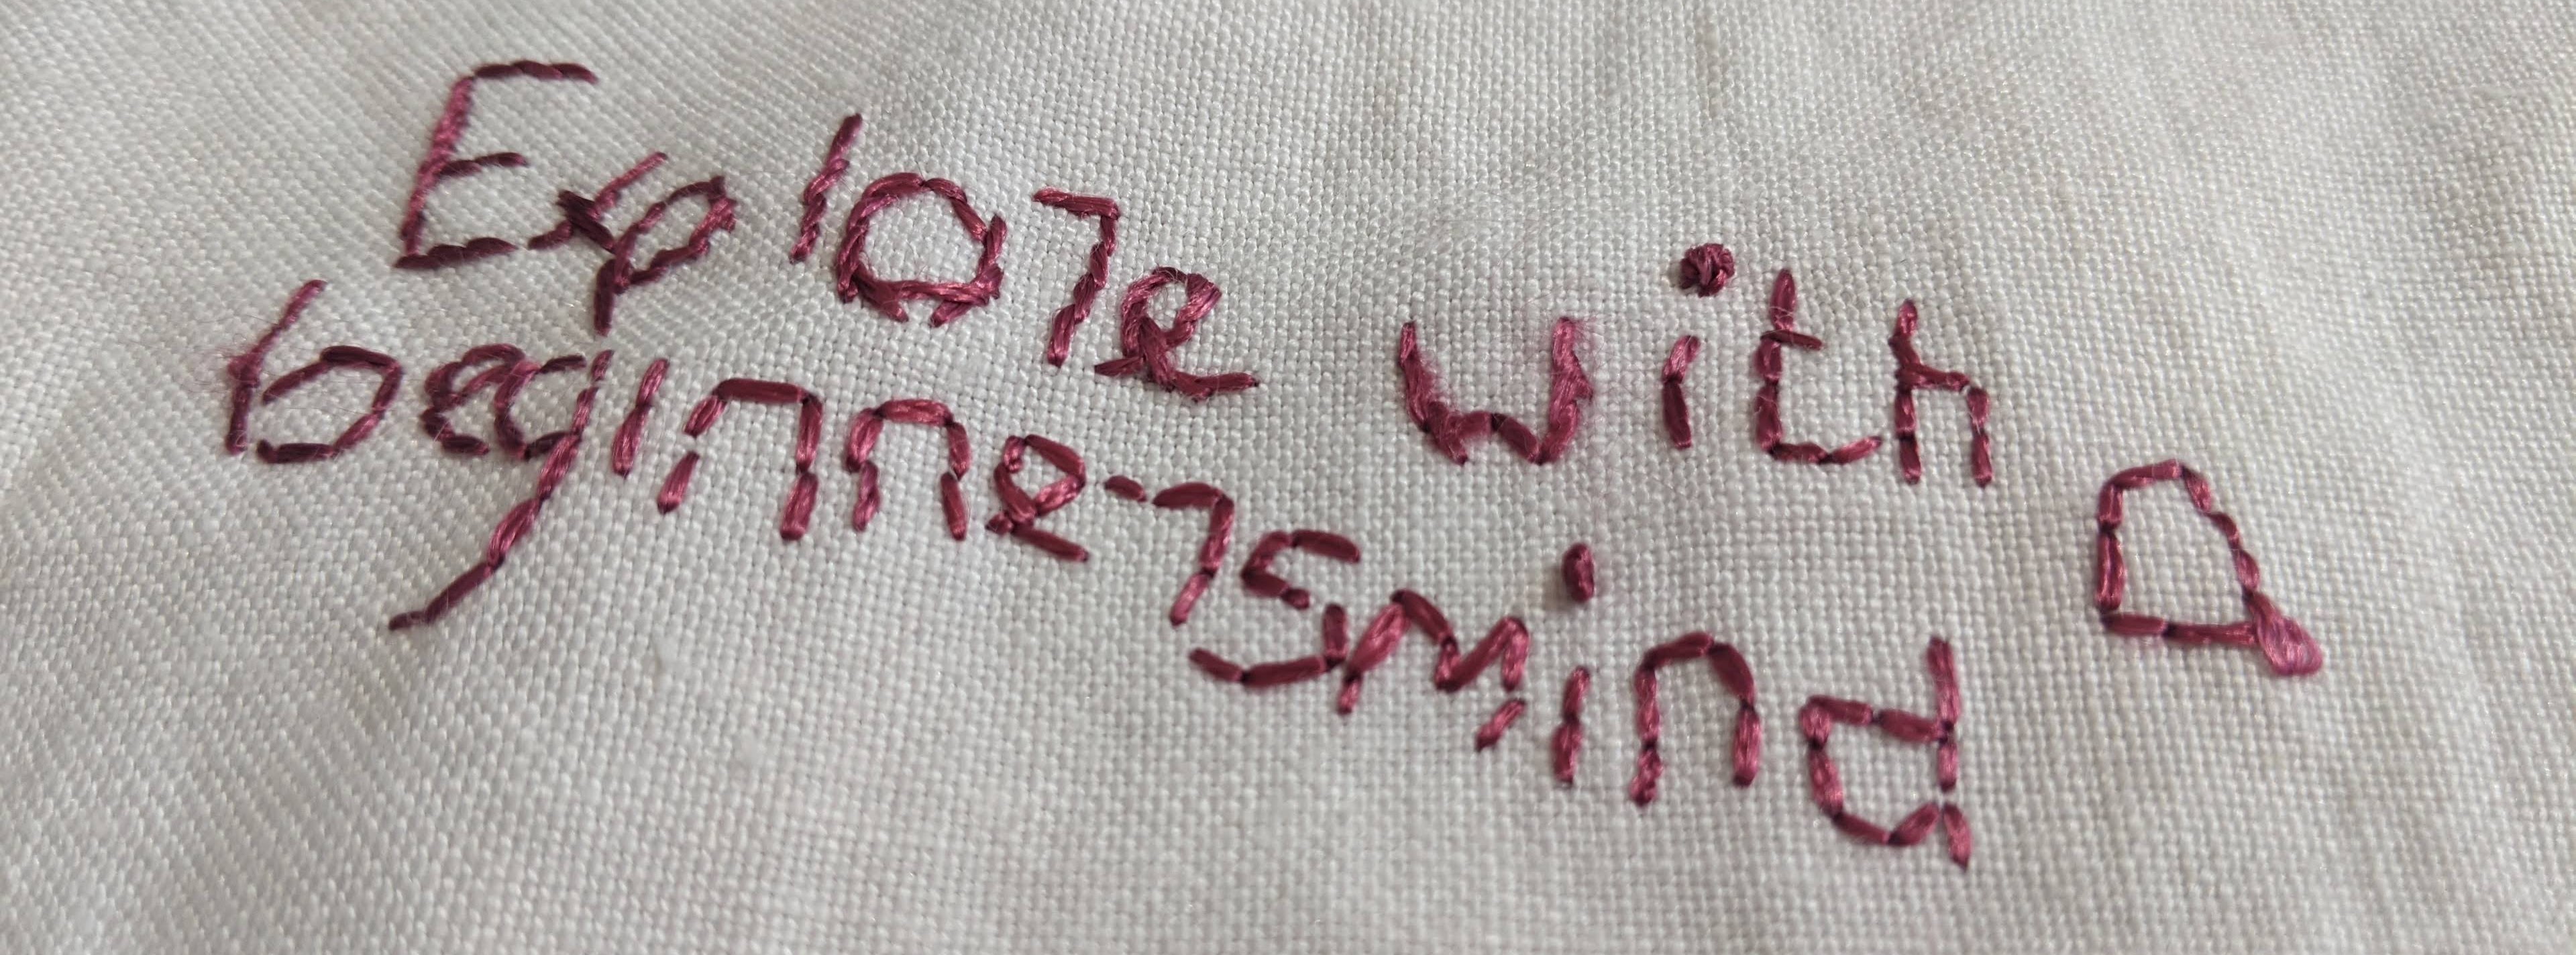 Explore with a
beginnersmind